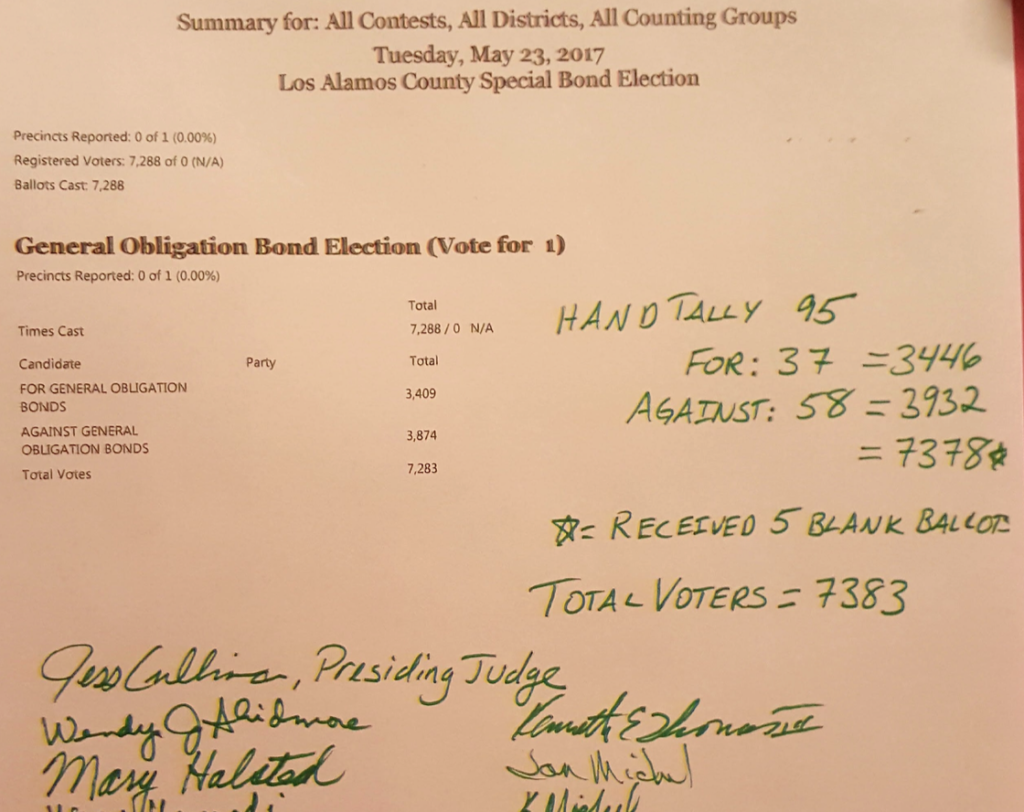 Summary for: All Contests, All Districts, All Counting Groups
Tuesday, May 23, 2017
Los Alamos County Special Bond Election
Precincts Reported: 0 of 1 (0.00%)
Registered Voters: 7,288 of 0 (N/A)
Ballots Cast: 7,288
General Obligation Bond Election (Vote for 1)
Precincts Reported: 0 of 1 (0.00%)
Total
Times Cast 7,288 / 0 N/A
Candidate Party Total
FOR GENERAL OBLIGATION
BONDS 3,409
AGAINST GENERAL
OBLIGATION BONDS 3,874
Total Votes 7,283
HAND TALLY 95
FOR: 37 = 3446
AGAINST: 58 = 3932
= 7378☆
☆= RECEIVED 5 BLANK BALLOTS
TOTAL VOTERS = 7383
Jess Cullinan, Presiding Judge
Wendy J Skidmore
Kenneth E Thomas III
Mary Halsted
Jan Michel